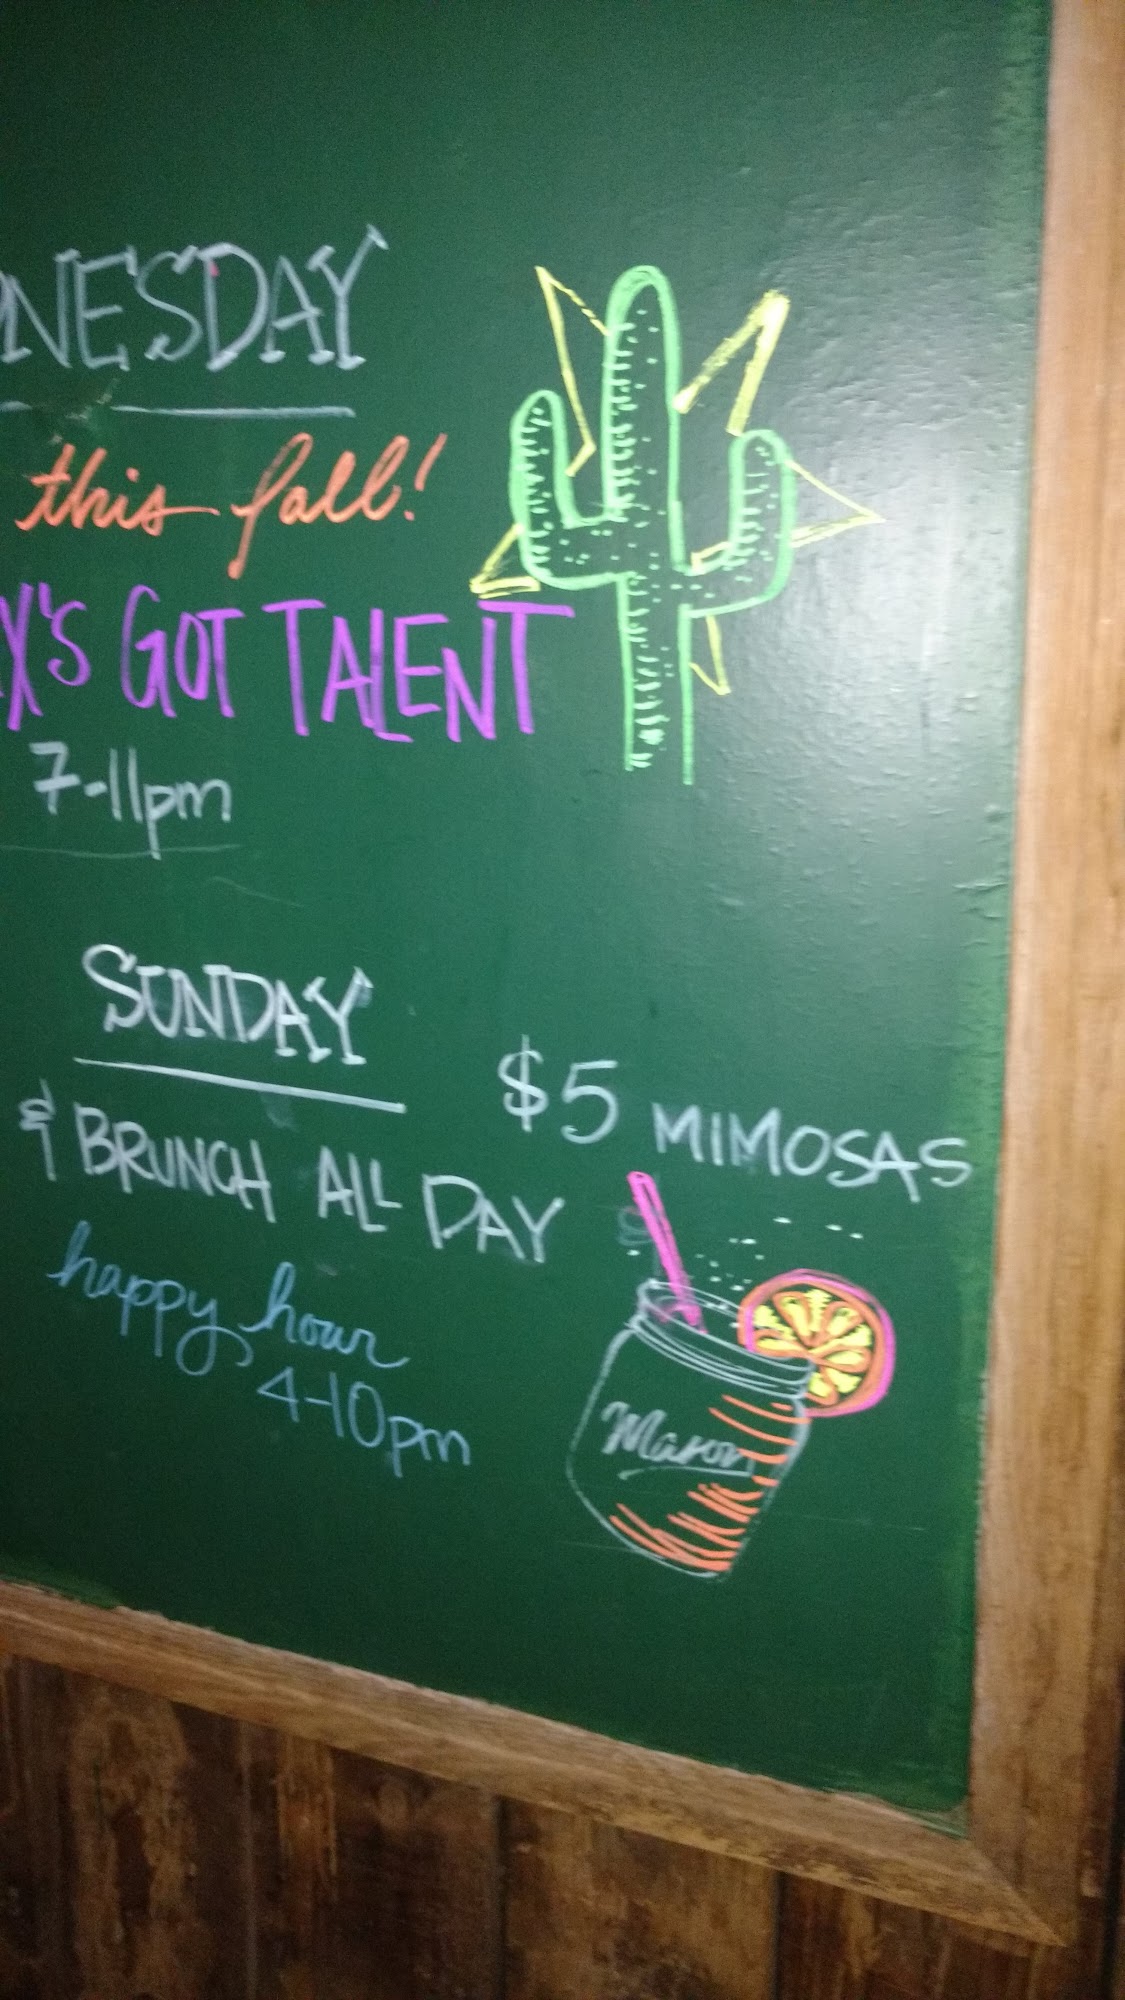 NESDAY
this fall!
X'S GOT TALENT
7-11pm
SUNDAY
& BRUNCH ALL DAY
happy hour
4-10pm
$5 MIMOSAS
Mason